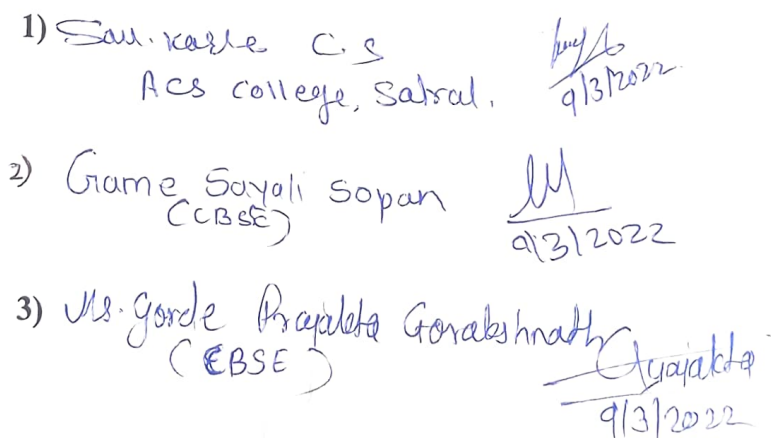 1) Sau. Karle C.S
ACS College, Satral.
9/3/2022
2) Game Sayali Sopan
(CBSE)
9/3/2022
3) Ms. Gorde Prajakta Gorakshnath
(CBSE)
Prajakta
9/3/2022